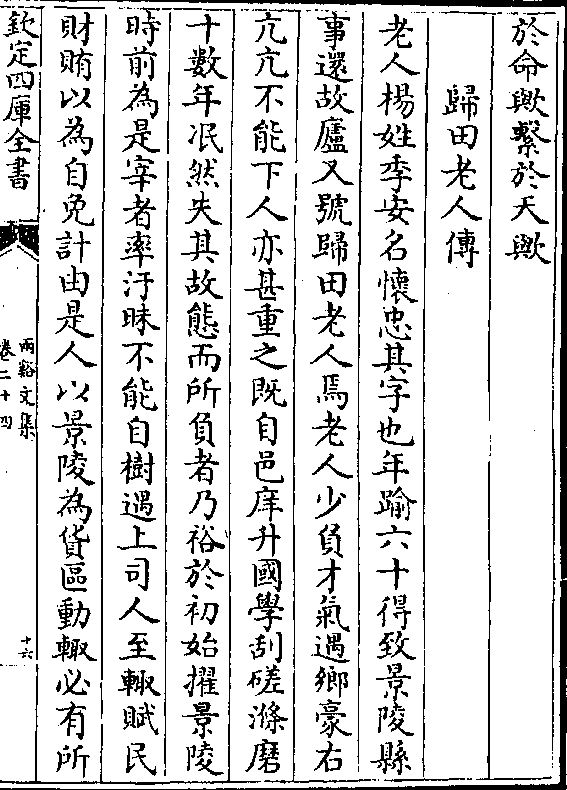 於命歟繫於天歟
歸田老人傳
老人楊姓季安名懷忠其字也年踰六十得致景陵縣
事還故廬又號歸田老人焉老人少負才氣遇鄉豪右
亢亢不能下人亦甚重之既自邑庠升國學刮磋滌磨
十數年泯然失其故態而所負者乃裕於初始擢景陵
時前為是宰者率汙昧不能自樹遇上司人至輙賦民
財賄以為自免計由是人以景陵為貨區動輙必有所
欽定四庫全書
兩谿文集
卷二十四
十六